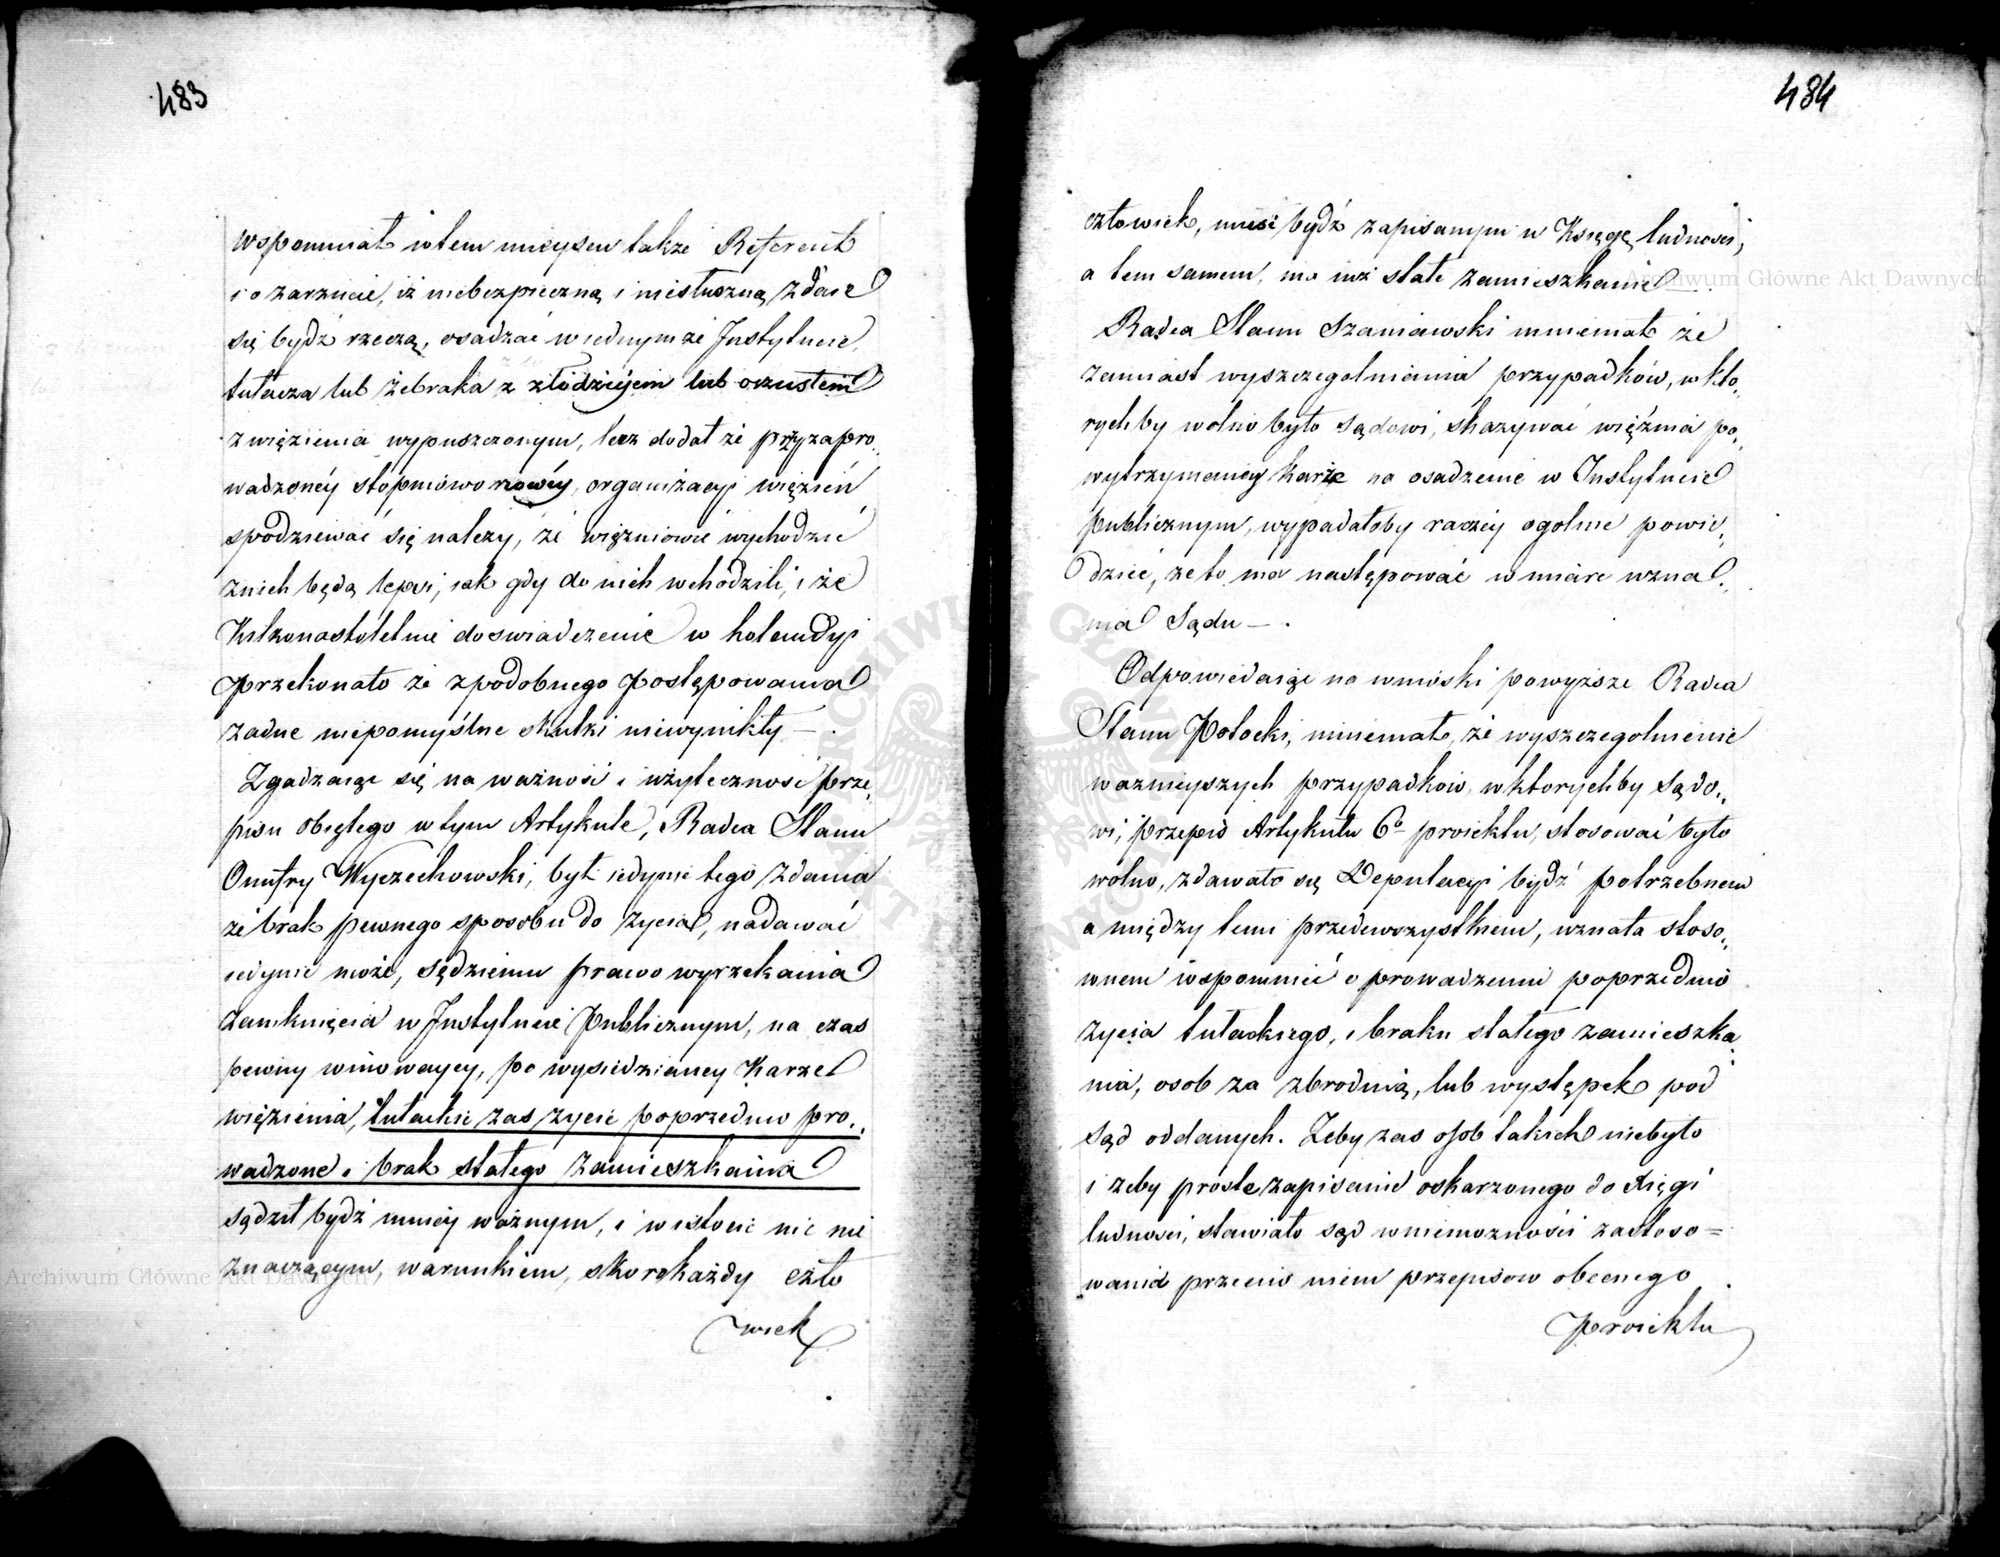 483
wspomniał w tem mieyscu także Referent
i o zarzucie, iż niebezpieczną i niesłuszną zdaie
się bydź rzeczą, osadzać w iednymże Instytucie,
tułacza lub żebraka z złodziejem lub oszustem
z więzienia wypuszczonym, lecz dodał że przy zapro„
wadzonéy stopniowo nowéy organizacyi więzień
spodziewać się należy, że więźniowie wychodzić
z nich będą lepsi, iak gdy do nich wchodzili, i że
Kilkonastoletnie doświadczenie w holandyi
przekonało że z podobnego postępowania
żadne niepomyślne skutki niewynikły —.
Zgadzaiąc się na ważność i użyteczność prze„
pisu obiętego w tym Artykule, Radca Stanu
Onufry Wyczechowski, był iedynie tego zdania
że brak pewnego sposobu do życia, nadawać
iedynie może, Sędziemu prawo wyrzekania
zamknięcia w Instytucie Publicznym, na czas
pewny winowaycy, po wysiedzianey Karze
więzienia, tułackie zas życie poprzednio pro„
wadzone i brak stałego zamieszkania
sądził bydź mniéy ważnym, i w istocie nic nie
znaczącym, warunkiem, skoro każdy czło
wiek
484
człowiek, musi bydź zapisanym w Księgę ludności,
a tem samem, ma iuż stałe zamieszkanie —
Radca Stanu Szaniawski mniemał że
zamiast wyszczegolniania przypadków, w któ„
rychby wolno było sądowi, skazywać więźnia po„
wytrzymaney karze na osadzenie w Instytucie
publicznym, wypadałoby raczéy ogolnie powie„
dzieć, że to ma następować w miarę uzna„
nia Sądu —.
Odpowiedaiąc na wnioski powyższe Radca
Stanu Potocki, mniemał, że wyszczegolnienie
ważnieyszych przypadków, w ktorychby Sądo„
wi, przepis Artykułu 6º proiektu, stosować było
wolno, zdawało się Deputacyi bydź potrzebnem
a między temi przedewszystkiem, uznała stoso„
wnem wspomnieć o prowadzeniu poprzednio
życia tułackiego, i braku stałego zamieszka„
nia, osob za zbrodnią, lub występek pod
Sąd oddanych. Żeby zas osob takich niebyło
i żeby proste zapisanie oskarżonego do Księgi
ludności, stawiało sąd w niemożności zastoso=
wania przeciw niem przepisow obecnego
proiektu
Archiwum Główne Akt Dawnych
Archiwum Główne Akt Dawnych